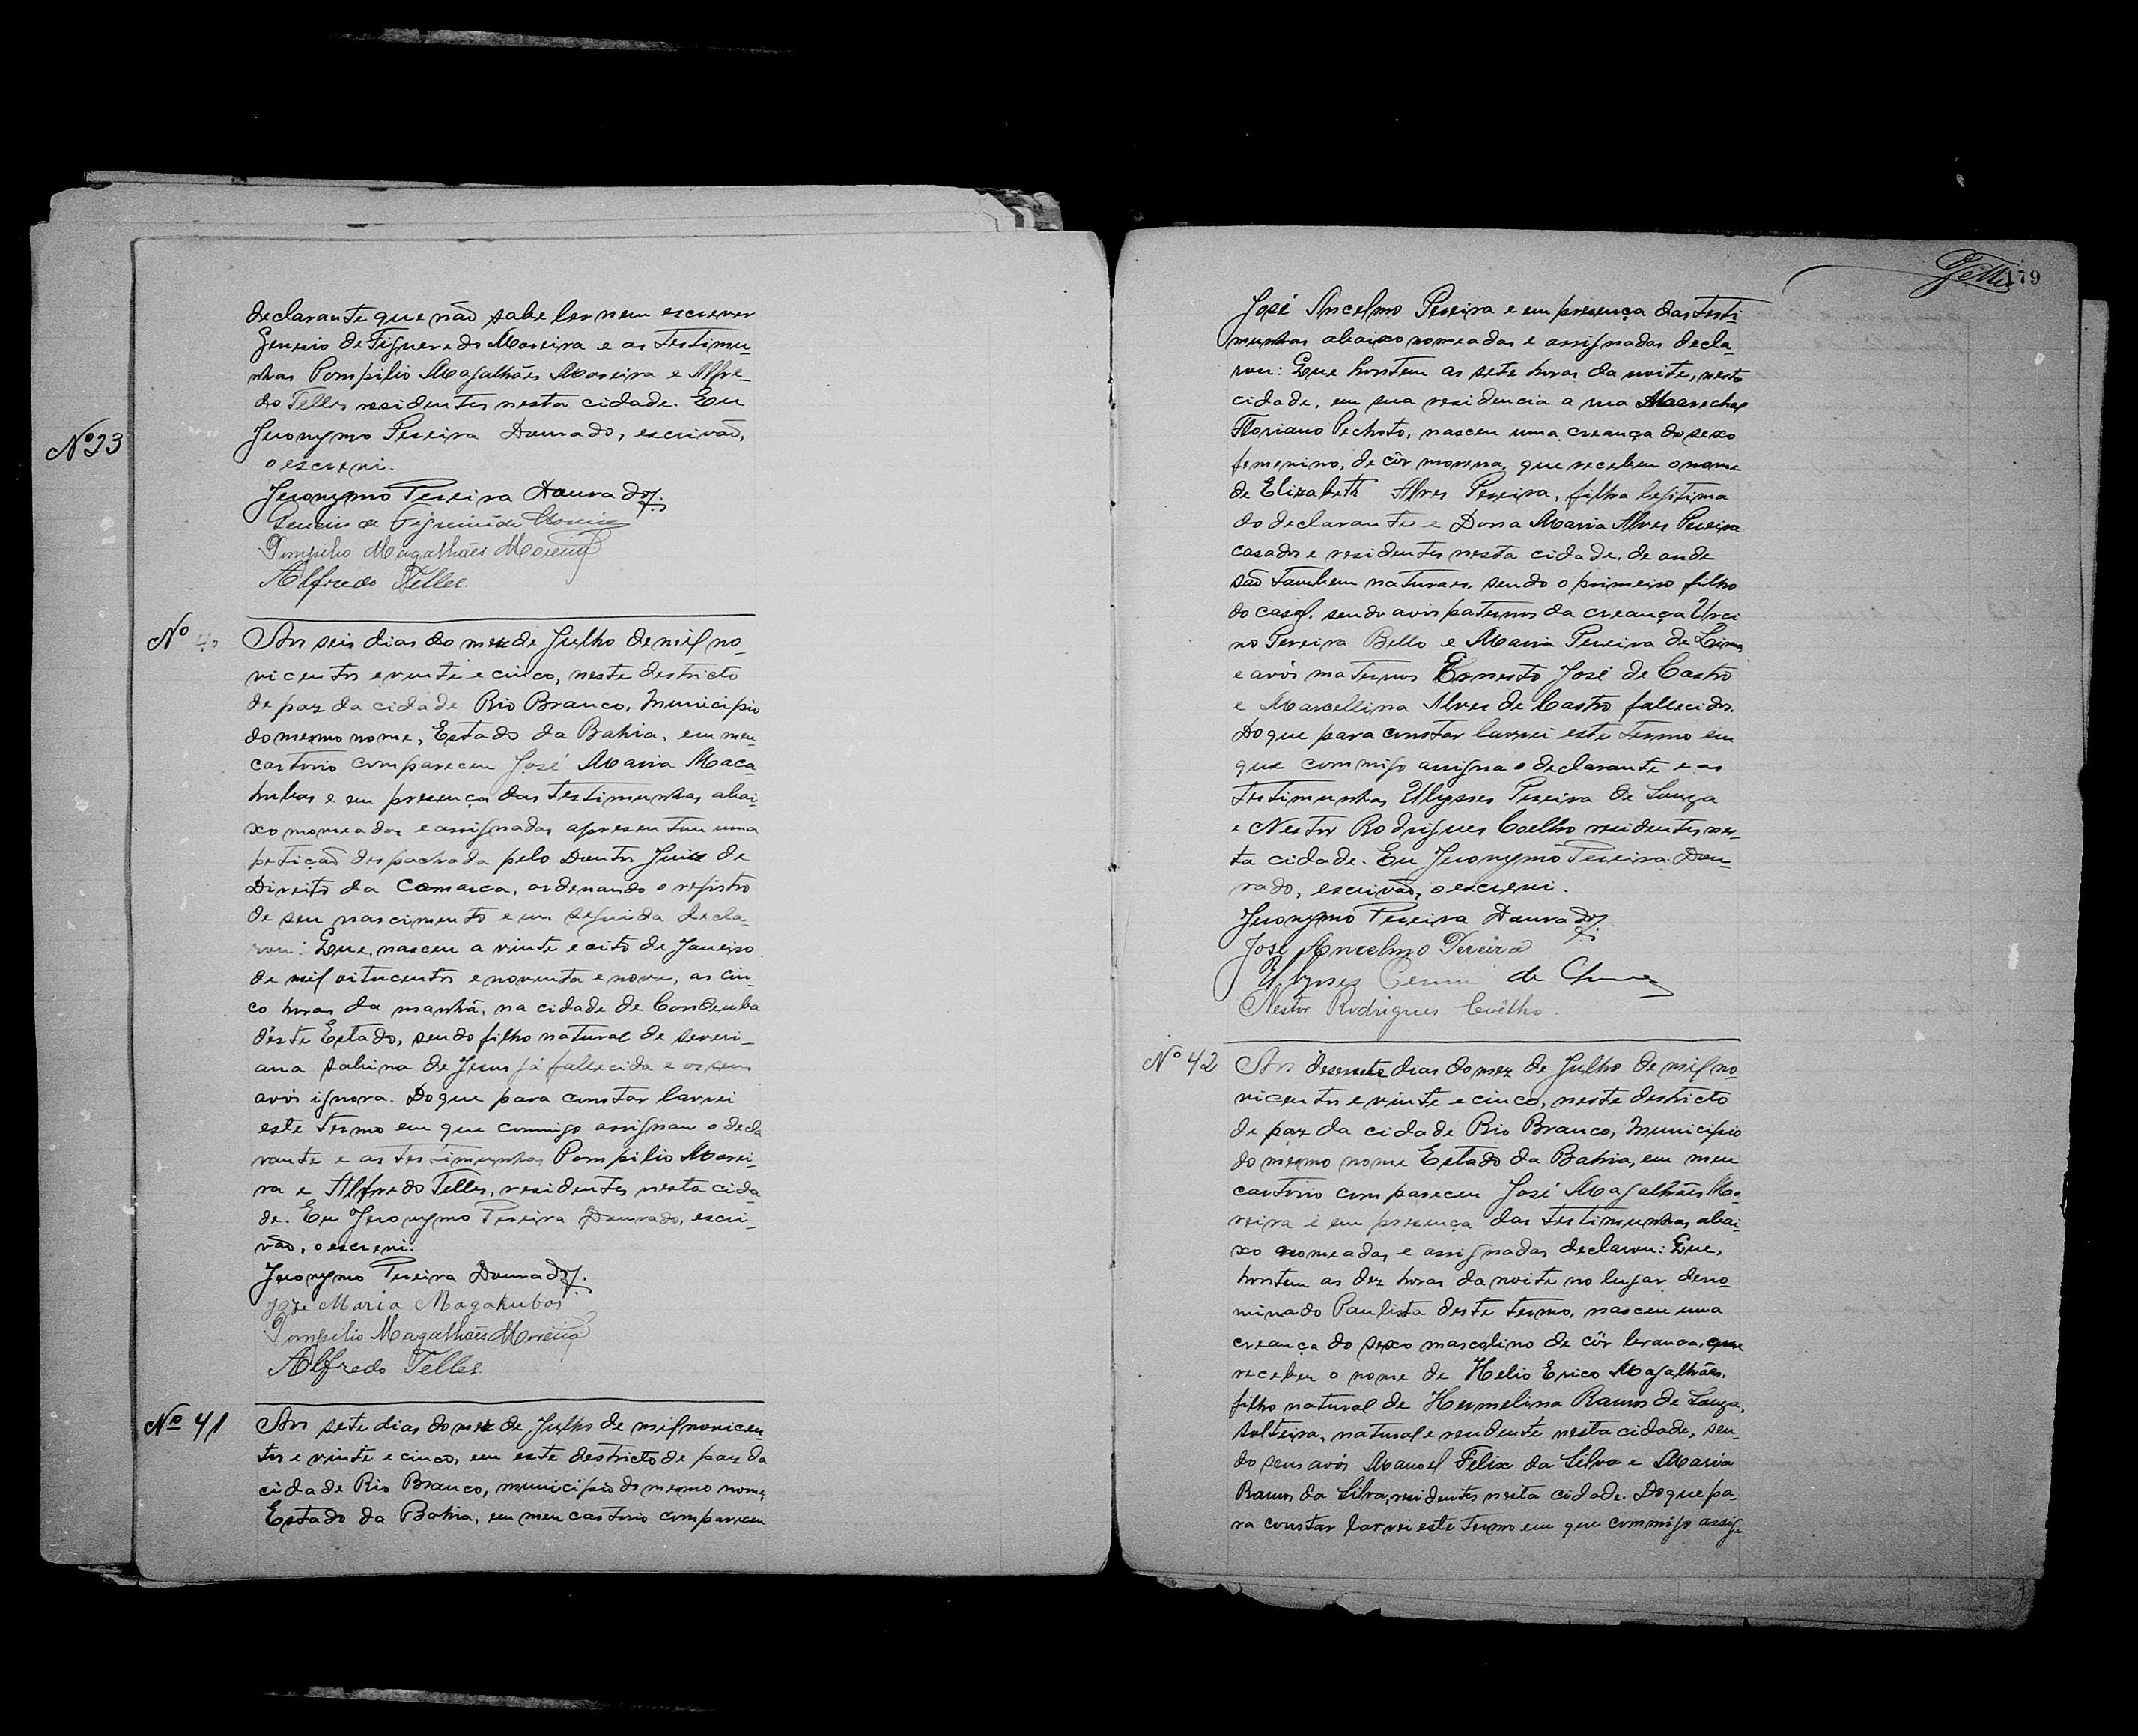 declarante que não sabe ler nem escrever
Genesio de Figueredo Moreira e as testimu-
nhas Pompilio Magalhães Moreira e Alfre-
do Telles residentes nesta cidade. Eu
Jeronymo Pereira Dourado, escrivão,
o escrevi.
Jeronymo Pereira Dourado.
Genesio de Figueiredo Moreira
Pompilio Magalhães Moreira
Alfredo Telles.
Nº 23
Nº 40
Aos seis dias do mez de Julho de mil no-
vicentos e vinte e cinco, neste destricto
de paz da cidade Rio Branco, Municipio
do mesmo nome, Estado da Bahia, em meu
cartorio compareceu José Maria Maca-
hubas e em presença das testimunhas abai-
xo nomeadas e assignadas apresentou uma
petição despachada pelo Doutor Juiz de
Direito da Comarca, ordenando o registro
de seu nascimento e em seguida decla-
rou: Que, nasceu a vinte e oito de Janeiro
de mil oitucentos e noventa e nove, as cin-
co horas da manhã, na cidade de Condeuba
déste Estado, sendo filho natural de Severi-
ana Sabina de Jesus já fallecida e os seus
avós ignora. Do que para constar lavrei
este termo em que commigo assignam o decla
rante e as testimunhas Pompilio Morei-
ra e Alfredo Telles, residentes nesta cida-
de. Eu Jeronymo Pereira Dourado, escri-
vão, o escrevi.
Jeronymo Pereira Dourado.
Joze Maria Magahubas
Pompilio Magalhães Moreira
Alfredo Telles
Nº 41
Aos sete dias do mez de Julho de mil novicen-
tos e vinte e cinco, em este destricto de paz da
cidade Rio Branco, municipio do mesmo nome,
Estado da Bahia, em meu cartorio compareceu
179
José Ancelmo Pereira e em presença das testi
munhas abaixo nomeadas e assignadas decla-
rou: Que hontem as sete horas da noite, nesta
cidade, em sua residencia a rua Marechal
Floriano Pechoto, nasceu uma creança do sexo
femenino, de côr morena, que recebeu o nome
de Elizabeth Alves Pereira, filha legitima
do declarante e Dona Maria Alves Pereira
casados e residentes nesta cidade, de onde
são tambem naturaes, sendo o primeiro filho
do casal, sendo avós paternos da creança Urci
no Pereira Bello e Maria Pereira de Lima
e avós maternos Ernesto José de Castro
e Marcellina Alves de Castro fallecidos.
Do que para constar lavrei este termo em
que commigo assigna o declarante e as
testimunhas Ulysses Pereira de Souza
e Nestor Rodrigues Coelho residentes nes-
ta cidade. Eu Jeronymo Pereira Dou-
rado, escrivão, o escrevi.
Jeronymo Pereira Dourado.
José Ancelmo Pereira
Ulysses de
Nestor Rodrigues Coêlho.
Nº 42
Aos desesete dias do mez de Julho de mil no-
vicentos e vinte e cinco, neste destricto
de paz da cidade Rio Branco, Municipio
do mesmo nome Estado da Bahia, em meu
cartorio compareceu José Magalhães Mo-
reira e em presença das testimunhas abai-
xo nomeadas e assignadas declarou: Que,
hontem as dez horas da noite no lugar deno-
minado Paulista deste termo, nasceu uma
creança do sexo mascolino de côr branca, que
recebeu o nome de Helio Erico Magalhães,
filho natural de Hermelina Ramos de Souza,
solteira, natural e residente nesta cidade, sen-
do seus avós Manoel Felix da Silva e Maria
Ramos da Silva, residentes nesta cidade. Do que pa-
ra constar lavrei este termo em que commigo assig-